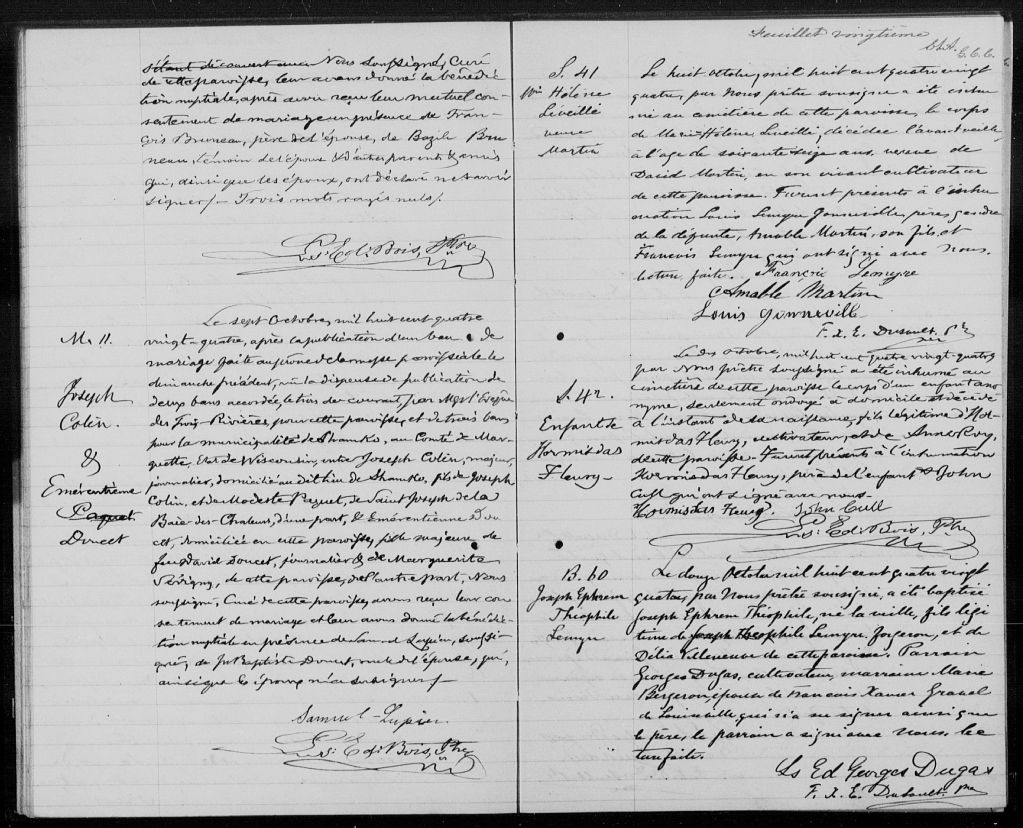 s'étant découvert aucun Nous soussigné, Curé
de cette paroisse, leur avons donné la bénédic
tion nuptiale, après avoir reçu leur mutuel con-
sentement de mariage en présence de Fran-
çois Bruneau, père de l'épouse, de Bazile Bru
neau, témoin de l'époux & d'autres parents & amis
qui, ainsi que les époux, ont déclaré ne savoir
signer/- Trois mots rayés nuls/.
Ls. Ed. Bois, Ptre
M. 11.
Joseph
Colin.
&
Emérentienne
Paquet
Doucet
Le sept Octobre, mil huit cent quatre
vingt-quatre, après la publication d'un ban de
mariage faite au prône de la messe paroissiale le
dimanche précédent, vu la dispense de publication de
deux bans accordée, le trois du courant, par Mgr l'Evêque
des Trois-Rivières, pour cette paroisse, et de trois bans
pour la municipalité de Shanko, au Comté de Mar-
quette, Etat de Wisconsin, entre Joseph Colin, majeur,
journalier, domicilié au dit lieu de Shanko, fils de Joseph
Colin, et de Modeste Paquet, de Saint Joseph de la
Baie-des-Chaleurs, d'une part, & Emérentienne Dou
cet, domiciliée en cette paroisse, fille majeure de
feu David Doucet, journalier & de Marguerite
Sévigny, de cette paroisse, de l'autre part, Nous
soussigné, Curé de cette paroisse, avons reçu leur con
sentement de mariage et leur avons donné la bénédic
tion nuptiale en présence de Samuel Lupien, soussi-
gné, de Jn Baptiste Doucet, oncle de l'épouse, qui,
ainsi que les époux n'a su signer/-
Samuel Lupien
Ls. Ed. Bois, Ptre
Feuillet vingtième
S. 41
Hélène
Léveillé
veuve
Martin
Le huit Octobre, mil huit cent quatre vingt
quatre, par Nous prêtre soussigné a été inhu
mé au cimetière de cette paroisse, le corps
de Marie-Hélène Léveillé, décédée l'avant veille
à l'age de soixante seize ans, veuve de
David Martin, en son vivant cultivateur
de cette paroisse. Furent présents à l'inhu
mation Louis Gonneville, gendre
de la défunte, Amable Martin, son fils, et
François Lemyre qui ont signé avec nous.
lecture faite. Francis Lemyre
Amable Martin
Louis Gonneville
F. X. E. Dusault, Ptre
S. 42.
Enfant de
Hormisdas
Fleury-
Le dix Octobre, mil huit cent quatre vingt-quatre
par Nous prêtre soussigné a été inhumé au
cimetière de cette paroisse le corps d'un enfant ano
nyme, seulement ondoyé à domicile et décédé
à l'instant de sa naissance, fils légitime d'Hor
misdas Fleury, cultivateur, et de Anne Roy,
de cette paroisse- Furent présents à l'inhumation
Hormisdas Fleury, père de l'enfant & John
Cull qui ont signé avec nous-
Hormisdas Fleury. John Cull
Ls. Ed. Bois, Ptre
B. 60
Joseph Ephrem
Théophile
Lemyre
Le douze Octobre mil huit cent quatre vingt
quatre, par Nous prêtre soussigné, a été baptisé
Joseph Ephrem Théophile, né la veille, fils légi
time de Joseph Théophile Lemyre, forgeron, et de
Délia Villeneuve de cette paroisse. Parrain
Georges Dugas, cultivateur, marraine Marie
Bergeron, épouse de François Xavier Gravel
de Louiseville, qui n'a su signer ainsi que
le père, le parrain a signé avec nous. lec
ture faite.
Ls Ed Georges Dugas
F. X. E. Dusault, Ptre